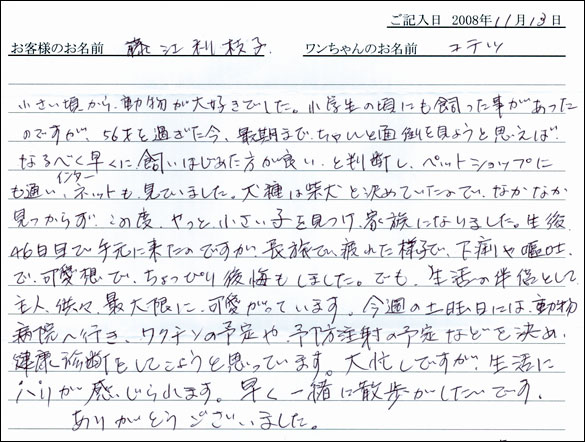 ご記入日 2008年11月13日
お客様のお名前 藤江利枝子 ワンちゃんのお名前 コテツ
小さい頃から、動物が大好きでした。小学生の頃にも飼った事があった
のですが、56才を過ぎた今、最期まで、ちゃんと面倒を見ようと思えば
なるべく早くに飼いはじめた方が良い、と判断し、ペットショップに
も通い、インターネットも、見ていました。犬種は柴犬と決めていたので、なかなか
見つからず、この度、やっと、小さい子を見つけ、家族になりました。生後
46日目で手元に来たのですが、長旅で、疲れた様子で、下痢や嘔吐
で、可愛想で、ちょっぴり後悔もしました。でも、生活の伴侶として
主人、供々、最大限に、可愛がっています。今週の土曜日には、動物
病院へ行き、ワクチンの予定や、予防注射の予定などを決め
健康診断をしてこようと思っています。大忙しですが、生活に
ハリが感じられます。早く一緒に散歩がしたいです。
ありがとうございました。